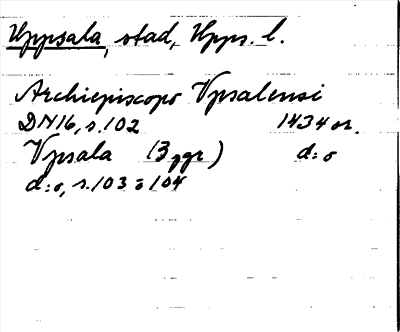 Uppsala, stad, Upps. l.
Archiepiscopo Vpsalensi
DN16, s. 102 1434 or.
Vpsala (3 ggr) d:o
d:o, s. 103 o 104